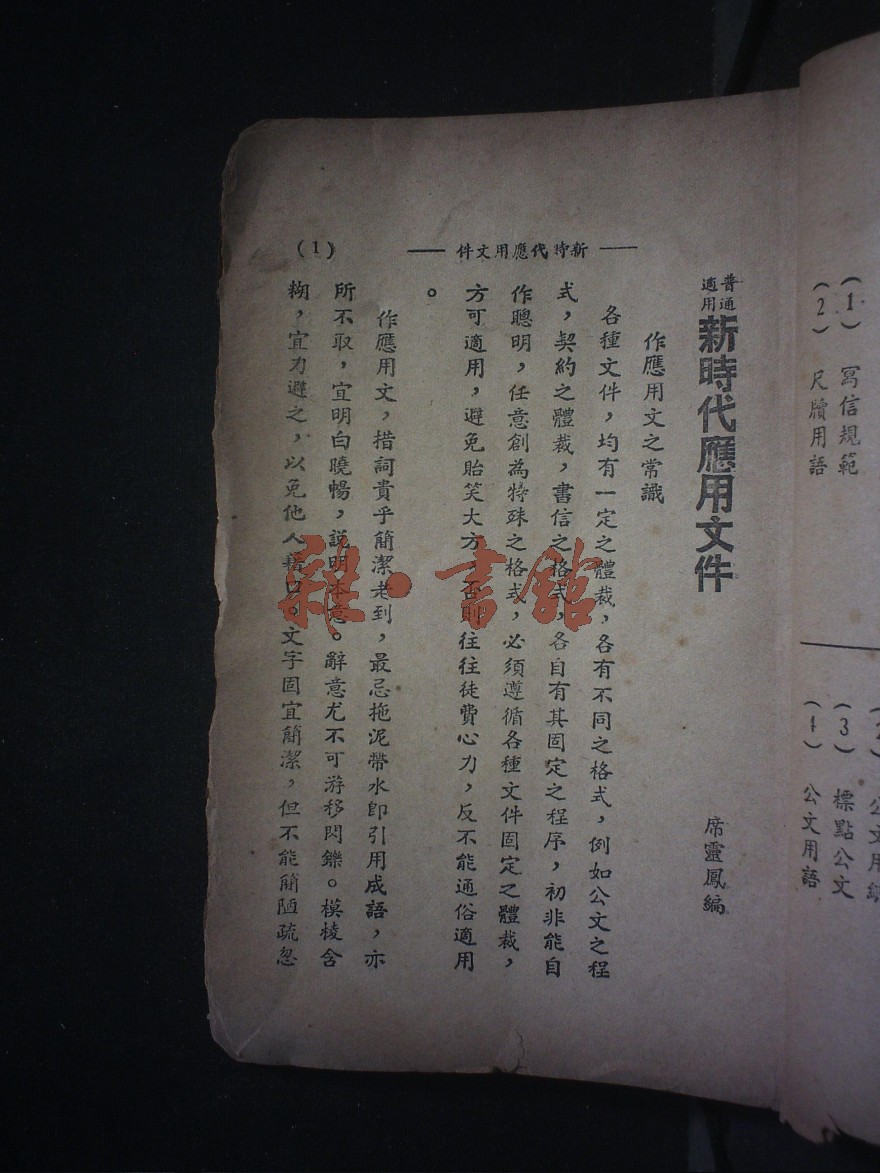 （1） 寫信規範
（2） 尺牘用語
（3） 標點公文
（4） 公文用語
普通適用
新時代應用文件
席靈鳳編
新時代應用文件
(1)
作應用文之常識
各種文件，均有一定之體裁，各有不同之格式，例如公文之程
式，契約之體裁，書信之格式，各自有其固定之程序，初非能自
作聰明，任意創為特殊之格式，必須遵循各種文件固定之體裁，
方可適用，避免貽笑大方，否則往往徒費心力，反不能通俗適用
。
作應用文，措詞貴乎簡潔老到，最忌拖泥帶水卽引用成語，亦
所不取，宜明白曉暢，說明本意。辭意尤不可游移閃鑠。模棱含
糊，宜力避之，以免他人藉口。文字固宜簡潔，但不能簡陋疏忽
雜·書館